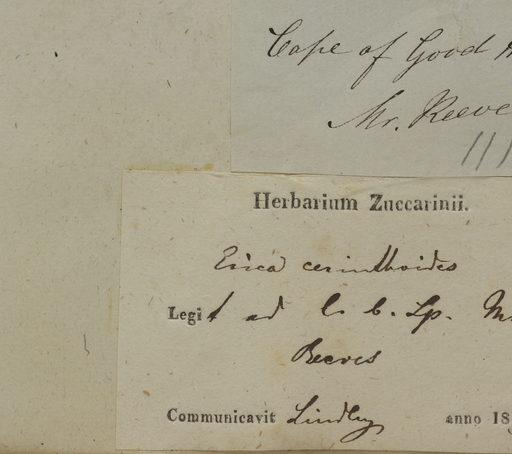 Cape of Good
Mr. Reeve
Herbarium Zuccarinii.
Erica cerinthoides
Legit ad C. b. Sp. M
Reeves
Communicavit Lindley anno 18